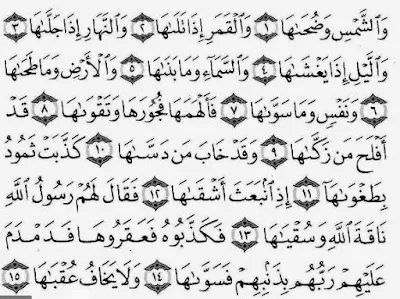 وَٱلشَّمْسِ وَضُحَىٰهَا ۝١ وَٱلْقَمَرِ إِذَا تَلَىٰهَا ۝٢ وَٱلنَّهَارِ إِذَا جَلَّىٰهَا ۝٣
وَٱلَّيْلِ إِذَا يَغْشَىٰهَا ۝٤ وَٱلسَّمَآءِ وَمَا بَنَىٰهَا ۝٥ وَٱلْأَرْضِ وَمَا طَحَىٰهَا
۝٦ وَنَفْسٍ وَمَا سَوَّىٰهَا ۝٧ فَأَلْهَمَهَا فُجُورَهَا وَتَقْوَىٰهَا ۝٨ قَدْ
أَفْلَحَ مَن زَكَّىٰهَا ۝٩ وَقَدْ خَابَ مَن دَسَّىٰهَا ۝١٠ كَذَّبَتْ ثَمُودُ
بِطَغْوَىٰهَآ ۝١١ إِذِ ٱنۢبَعَثَ أَشْقَىٰهَا ۝١٢ فَقَالَ لَهُمْ رَسُولُ ٱللَّهِ
نَاقَةَ ٱللَّهِ وَسُقْيَىٰهَا ۝١٣ فَكَذَّبُوهُ فَعَقَرُوهَا فَدَمْدَمَ
عَلَيْهِمْ رَبُّهُم بِذَنۢبِهِمْ فَسَوَّىٰهَا ۝١٤ وَلَا يَخَافُ عُقْبَىٰهَا ۝١٥